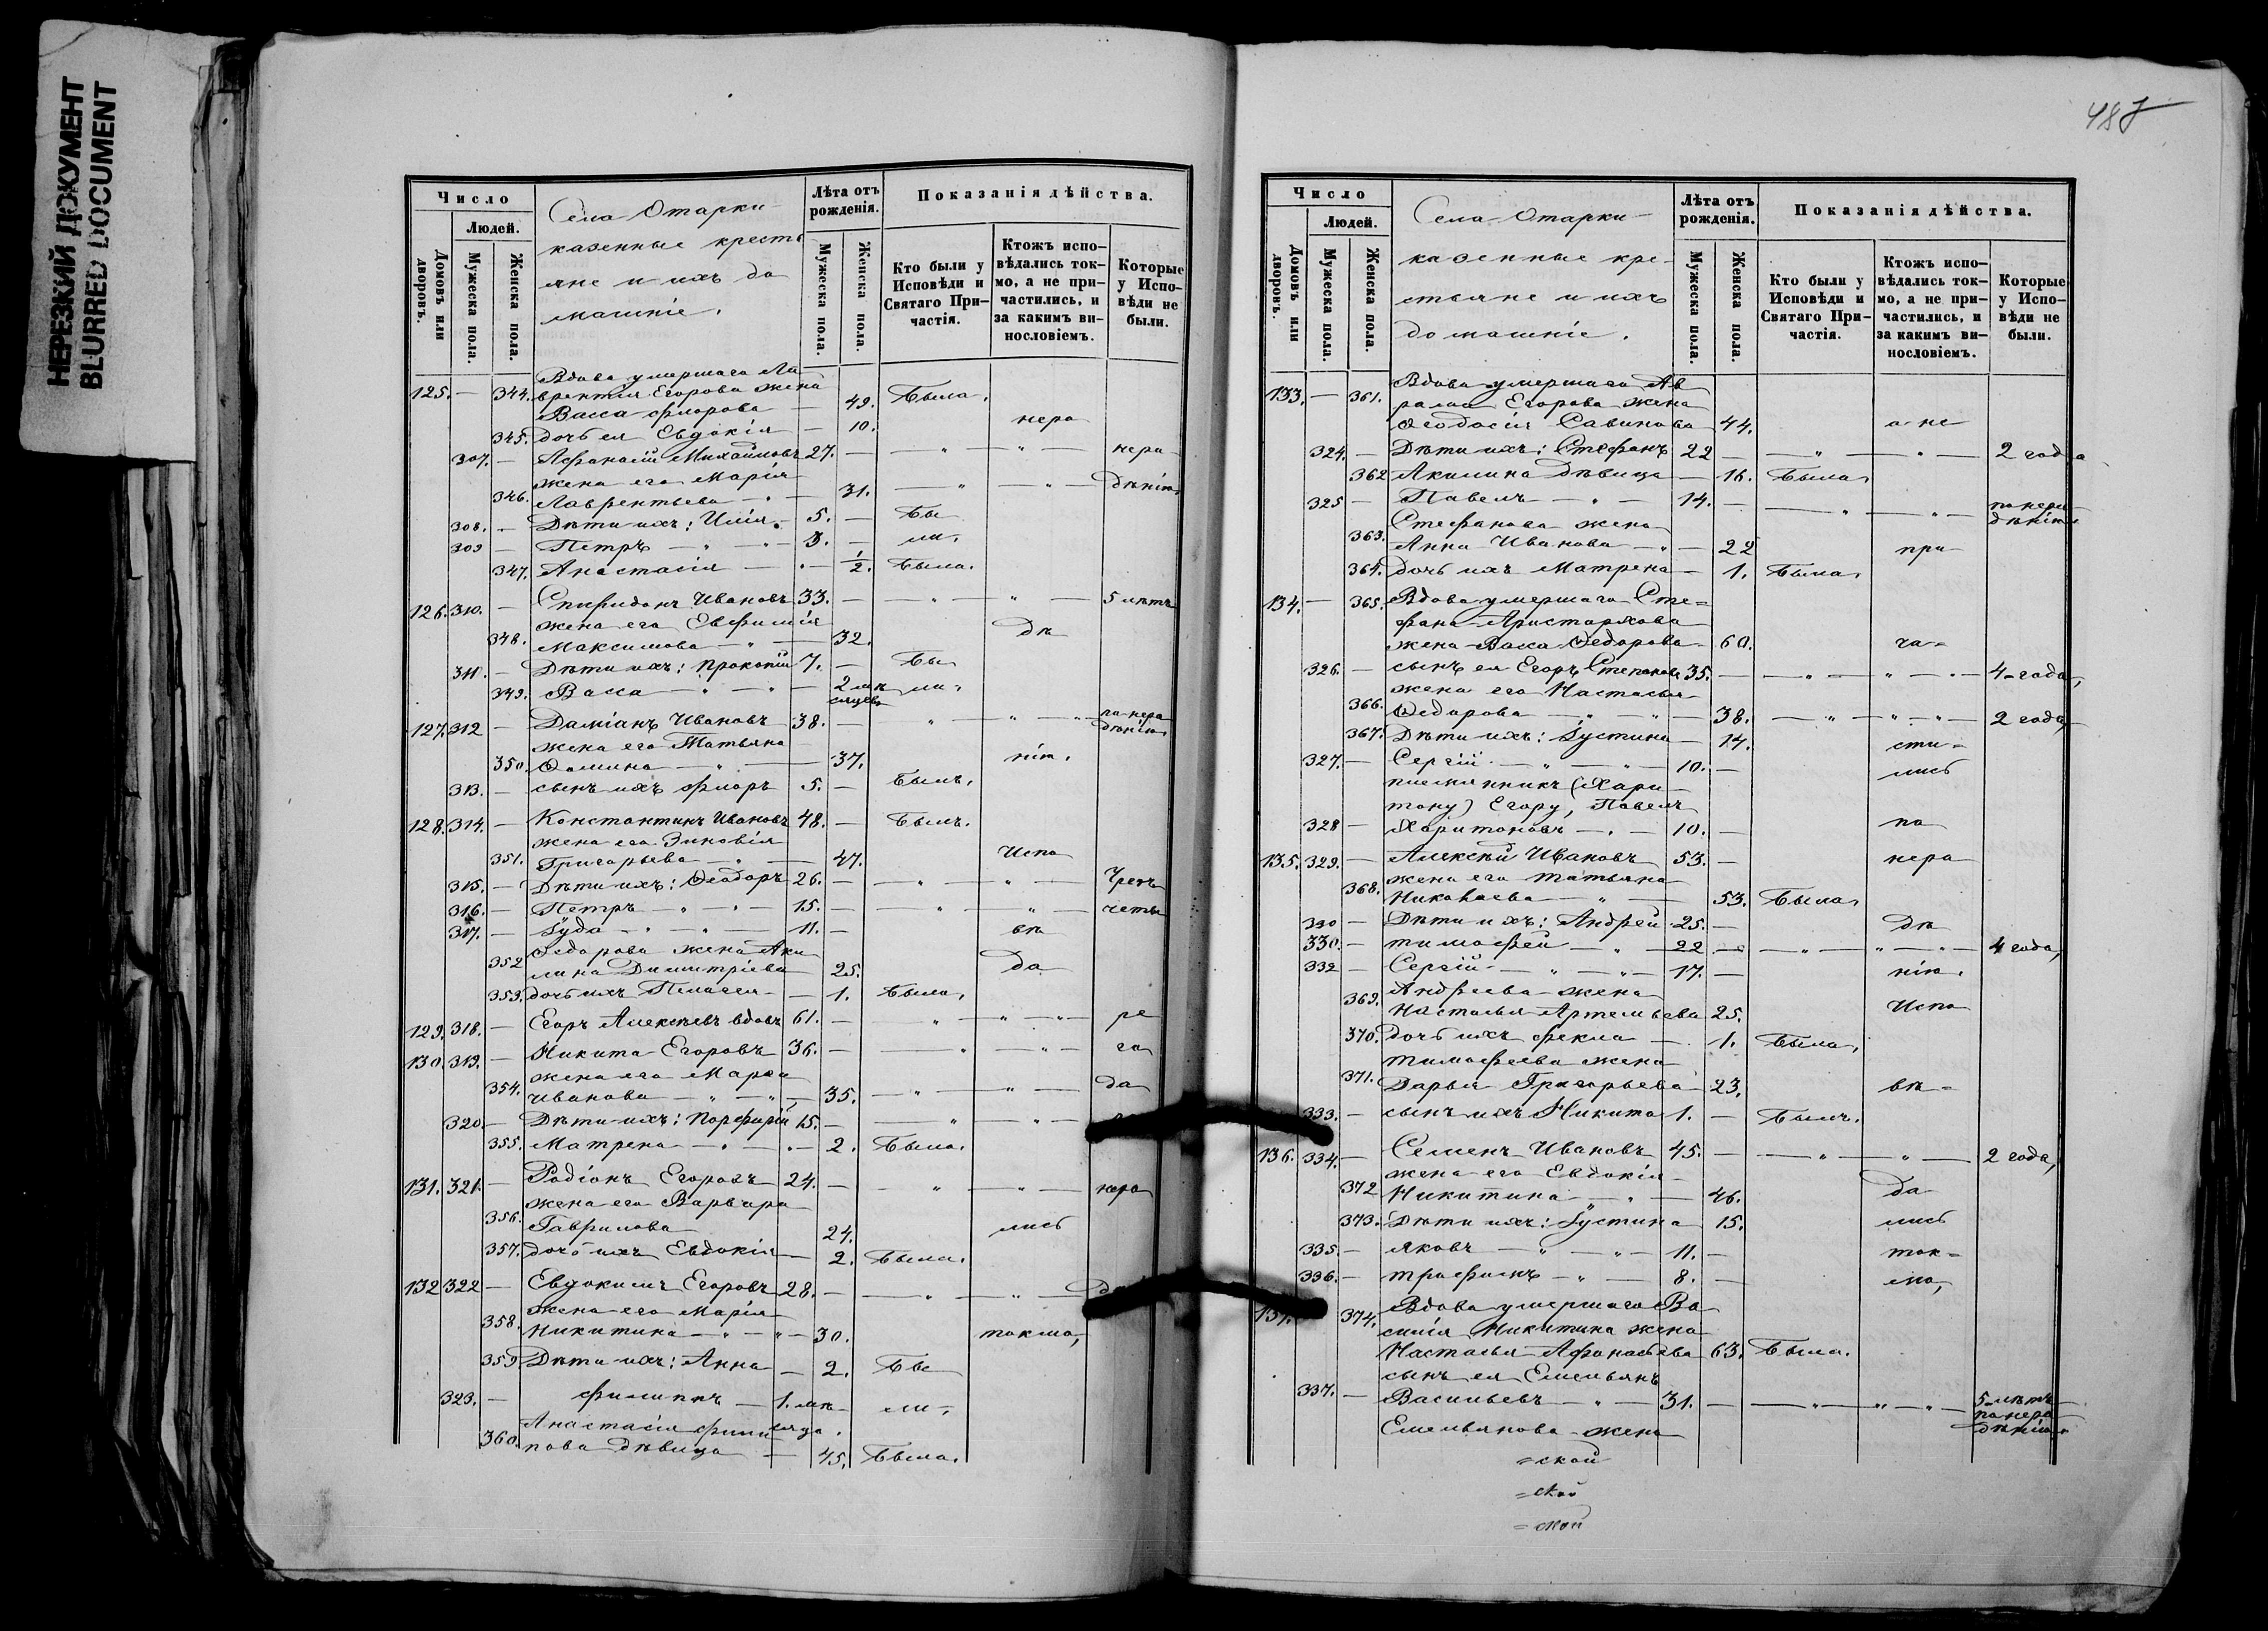 НЕРЕЗКИЙ ДОКУМЕНТ
BLURRED DOCUMENT
Число
Людей.
Домовъ или дворовъ.
Мужеска пола.
Женска пола.
Села Отарки
казенные кресть
яне и ихъ до
машніе.
Лѣта отъ рожденія.
Мужеска пола.
Женска пола.
Показанія дѣйства.
Кто были у Исповѣди и Святаго При-частія.
Ктожъ испо-вѣдались ток-мо, а не при-частились, и за какимъ ви-нословіемъ.
Которые у Испо-вѣди не были.
125. — 344. Вдова умершаго Ла
врентія Егорова жена
Васса Флорова — 49. Была.
345. дочь ея Евдокія — 10. нера
307. — Афанасій Михайловъ 27. — " — " — нера
жена его Марія
346. Лаврентьева — " — 31. — " — " — дѣнію
308. — Дѣти ихъ: Илія 5. — Бы
309 — Петръ — " — " — 3. — ли.
347. Анастасія — " — 1/2. Была.
126. 310. — Спиридонъ Ивановъ 33. — " — " — 5 лѣтъ
жена его Евфимія
348. Максимова — " — 32. дѣ
311. — Дѣти ихъ: Прокопій 7. — Бы
349. Васса — " — " — 2 мѣ ли.
сяцевъ
127. 312 — Даміанъ Ивановъ 38. — " — " — по нера
дѣнію
жена его Татьяна
350. Фомина — " — 37. нію.
313. — сынъ ихъ Флоръ 5. — Былъ.
128. 314. — Константинъ Ивановъ 48. — Былъ.
жена его Зиновія
351. Григорьева — " — 47. Испо
315. — Дѣти ихъ: Ѳеодоръ 26. — " — " —
316. — Петръ — " — " — 15. — " — " — четы
317. — Іуда — " — " — 11. — вѣ
Ѳедорова жена Аки
352 лина Димитріева 25. да
353. дочь ихъ Пелагея — 1. Была.
129. 318. — Егоръ Алексѣевъ вдовъ 61. — " — " — " — ре
130. 319. — Никита Егоровъ 36. — " — " — го
жена его Марѳа
354. Иванова — " — " — 35. — " — " — да
320. — Дѣти ихъ: Порфирій 15. — " — " —
355. Матрена — " — " — 2. Была.
131. 321. — Родіонъ Егоровъ 24. — " — " — нера
жена его Варвара
356. Гаврилова 24. лись
357. дочь ихъ Евдокія — 2. Была.
132 322 — Евдокимъ Егоровъ 28. — " — " —
жена его Марія
358. Никитина — " — " — 30. токмо,
359. Дѣти ихъ: Анна — 2. Бы
323. — Филиппъ — 1. мѣ ли.
сяца.
Анастасія Фили
360. пова дѣвица — 45. Была.
487
Число
Людей.
Домовъ или дворовъ.
Мужеска пола.
Женска пола.
Села Отарки
казенные кре-
стьяне и ихъ
домашніе.
Лѣта отъ рожденія.
Мужеска пола.
Женска пола.
Показанія дѣйства.
Кто были у Исповѣди и Святаго При-частія.
Ктожъ испо-вѣдались ток-мо, а не при-частились, и за какимъ ви-нословіемъ.
Которые у Испо-вѣди не были.
133. — 361. Вдова умершаго Ав
рама Егорова жена
Ѳеодосія Савинова 44. а не
324. — Дѣти ихъ: Стефанъ 22 — " — " — 2 года
362 Акилина дѣвица — 16. Была.
325 — Павелъ — " — 14. — " — " — по нера
дѣнію
Стефанова жена
363. Анна Иванова — " — 22 при
364. дочь ихъ Матрена — 1. Была.
134. — 365. Вдова умершаго Сте=
фана Аристархова
жена Васса Ѳедорова 60. ча=
326. — сынъ ея Егоръ Степановъ 35. — " — " — " — 4 года,
жена его Настасья
366. Ѳедорова — " — " — 38. — " — " — " — 2 года,
367. Дѣти ихъ: Іустина — 14. сти=
327. — Сергій — " — " — 10. — лись
племянникъ (Хари
тону) Егору, Павелъ
328 — Харитоновъ — " — 10. — по
135. 329. — Алексѣй Ивановъ 53. — нера
жена его Татьяна
368. Николаева — " — 53. Была.
330 — Дѣти ихъ: Андрей 25. — дѣ
330. — Тимофей — " — 22 — " — " — " — 4 года,
332 — Сергій — " — " — 17. — нію.
Андреева жена
369. Настасья Артемьева 25. Испо
370. дочь ихъ Фекла — 1. Была.
Тимофеева жена
371. Дарья Григорьева 23. вѣ=
333. — сынъ ихъ Никита 1. — Былъ.
136. 334. — Семенъ Ивановъ 45. — " — " — 2 года,
жена его Евдокія
372 Никитина — " — 46. да
373. Дѣти ихъ: Іустина 15. лись
335. — Яковъ — " — " — 11. — ток=
336. — Трофимъ — " — 8. — мо,
137. 374. Вдова умершаго Ва
силія Никитина жена
Настасья Афанасьева 63. Была.
сынъ ея Емельянъ
337. — Васильевъ — " — 31. — " — " — " — 5 лѣтъ
по нера
дѣнію.
Емельянова жена
=ской
=ской
=ской